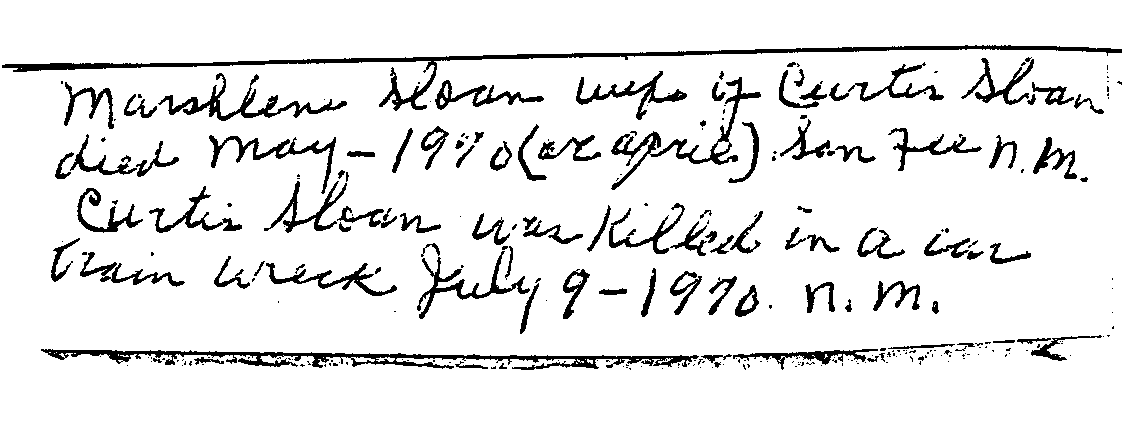 Marshlene Sloan wife of Curtis Sloan
died May - 1970 (or april) San Fee N.M.
Curtis Sloan was Killed in a car
train wreck July 9 - 1970. N.M.